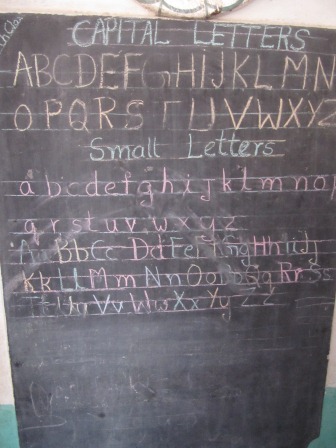 CAPITAL LETTERS
ABCDEFGHIJKLMN
OPQRSTUVWXYZ
Small Letters
abcdefghijklmnop
qrstuvwxyz
Aa Bb Cc Dd Ee Ff Gg Hh Ii Jj
Kk Ll Mm Nn Oo Pp Qq Rr Ss
Tt Uu Vv Ww Xx Yy Zz